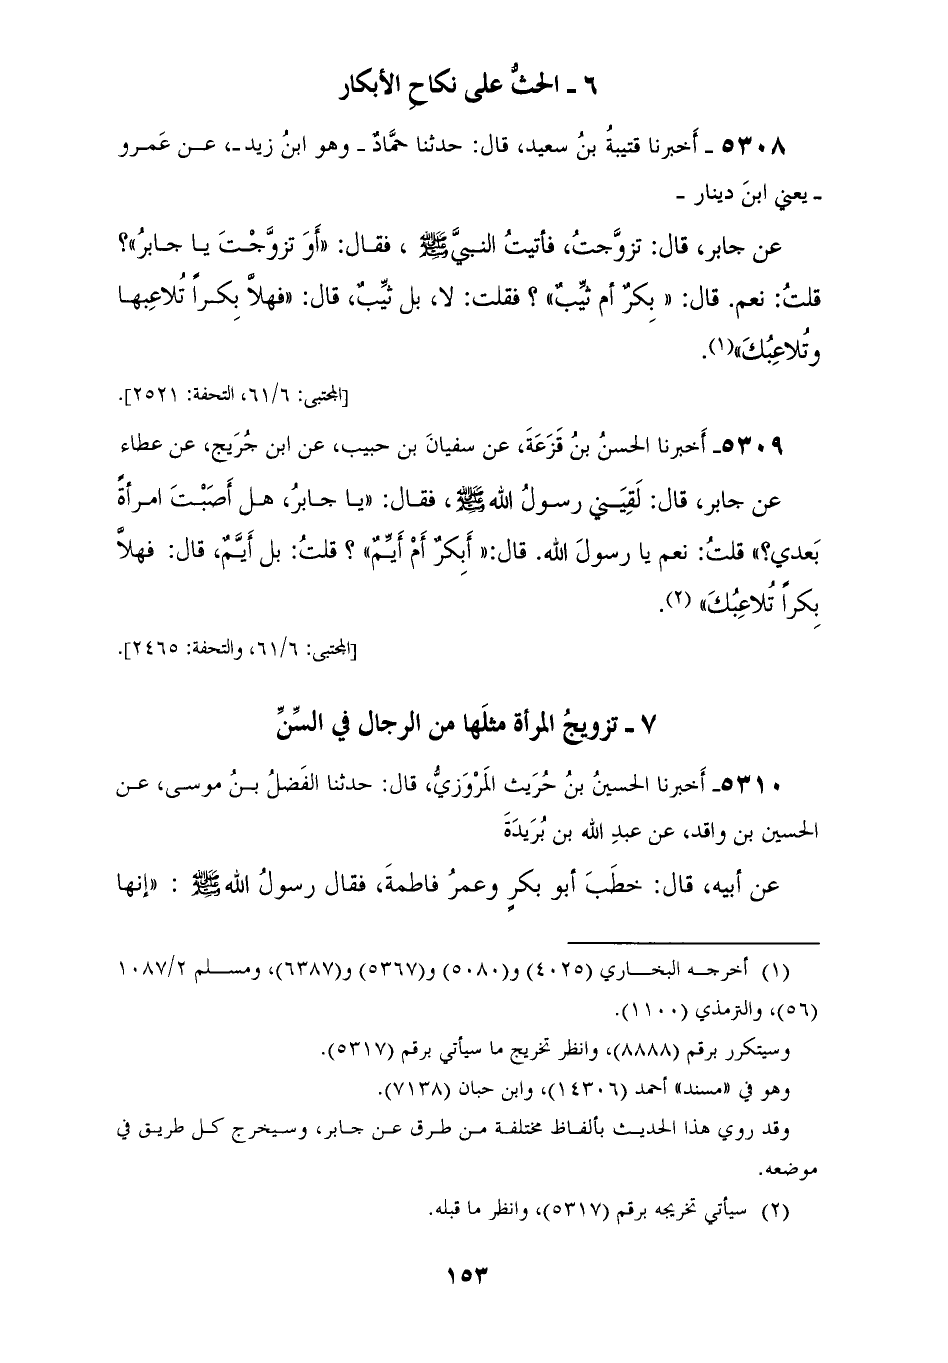 ٦ ـ الحثُّ على نكاحِ الأبكار
٥٣٠٨ ـ أَخبرنا قتيبةُ بنُ سعيد، قال: حدثنا حمَّادٌ ـ وهو ابنُ زيد ـ، عـن عَمرو
ـ يعني ابنَ دينار ـ
عن جابر، قال: تزوَّجتُ، فأتيتُ النبيَّ ﷺ ، فقال: «أَوَ تزوَّجْتَ يا جابرُ»؟
قلتُ: نعم. قال: « بِكرٌ أم ثيِّبٌ» ؟ فقلت: لا، بل ثيِّبٌ، قال: «فهلاَّ بِكراً تُلاعِبها
وتُلاعِبُكَ»(١).
[المجتبى: ٦١/٦، التحفة: ٢٥٢١].
٥٣٠٩ـ أَخبرنا الحسنُ بنُ قَزَعَةَ، عن سفيانَ بن حبيب، عن ابن جُرَيج، عن عطاء
عن جابر، قال: لَقِيَني رسولُ الله ﷺ ، فقال: «يا جابرُ، هل أَصَبْتَ امرأةً
بَعدي؟» قلتُ: نعم يا رسولَ الله. قال:« أَبِكرٌ أَمْ أَيِّمٌ» ؟ قلتُ: بل أَيَّمٌ، قال: فهلاَّ
بِكراً تُلاعِبُكَ» (٢).
[المجتبى: ٦١/٦، والتحفة: ٢٤٦٥].
٧ ـ تزويجُ المرأة مثلَها من الرجال في السِّنِّ
٥٣١٠ـ أَخبرنا الحسينُ بنُ حُرَيث المَرْوَزيُّ، قال: حدثنا الفَضلُ بنُ موسى، عن
الحسين بن واقد، عن عبدِ الله بن بُرَيدَةَ
عن أبيه، قال: خطَبَ أبو بكرٍ وعمرُ فاطمةَ، فقال رسولُ الله ﷺ : «إنها
(١) أخرجه البخاري (٤٠٢٥) و(٥٠٨٠) و(٥٣٦٧) و(٦٣٨٧)، ومسلم ١٠٨٧/٢
(٥٦)، والترمذي (١١٠٠).
وسيتكرر برقم (٨٨٨٨)، وانظر تخريج ما سيأتي برقم (٥٣١٧).
وهو في «مسند» أحمد (١٤٣٠٦)، وابن حبان (٧١٣٨).
وقد روي هذا الحديث بألفاظ مختلفة من طرق عن جابر، وسيخرج كل طريق في
موضعه.
(٢) سيأتي تخريجه برقم (٥٣١٧)، وانظر ما قبله.
١٥٣